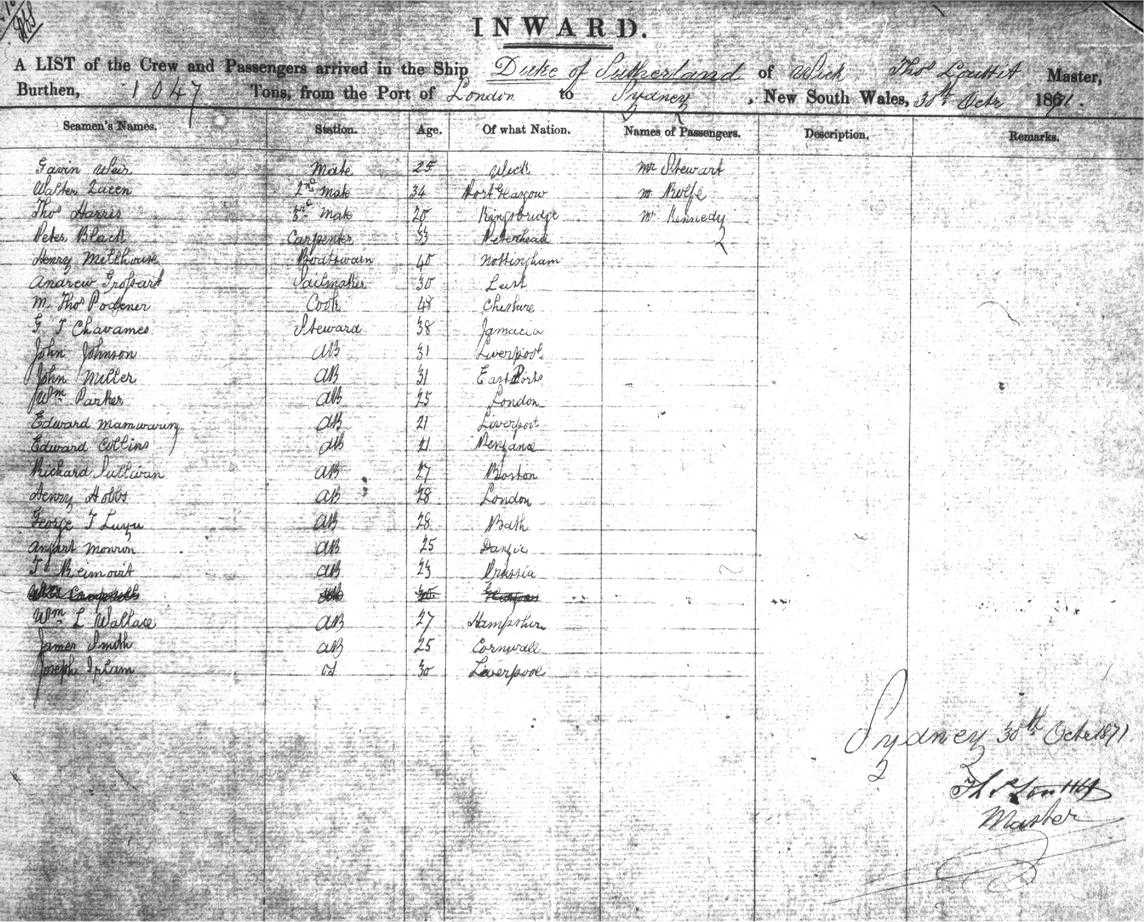 INWARD.
A LIST of the Crew and Passengers arrived in the Ship Duke of Sutherland of Wick Thos Louttit Master,
Burthen, 1047 Tons, from the Port of London to Sydney, New South Wales, 30th Octr 1871.
Seamen's Names. Station. Age. Of what Nation. Names of Passengers. Description. Remarks.
Gavin Weir Mate 25 Wick Mr Stewart
Walter 2nd Mate 34 Port Glasgow Mr Rolfe
Thos Harris 3rd Mate 20 Kingsbridge Mr Kennedy
Peter Black Carpenter 33 Peterhead
Henry Boatswain 40 Nottingham
Andrew Sailmaker 30
Thos Cook 48 Cheshire
Steward 38 Jamacia
John Johnson AB 31 Liverpool
John Miller AB 31
Wm Parker AB 25 London
Edward AB 21 Liverpool
Edward Collins AB 21 Penzance
Richard Sullivan AB 27 Boston
Henry Hobbs AB 28 London
George T AB 28 Bath
AB 25
AB 23 Prussia
Wm L Wallace AB 27 Hampshire
James Smith AB 25 Cornwall
Joseph od 30 Liverpool
Sydney 30th Octr 1871
Thos Louttit
Master